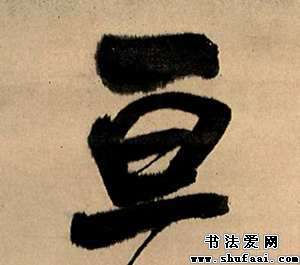 亘
书法爱网
www.shufaai.com